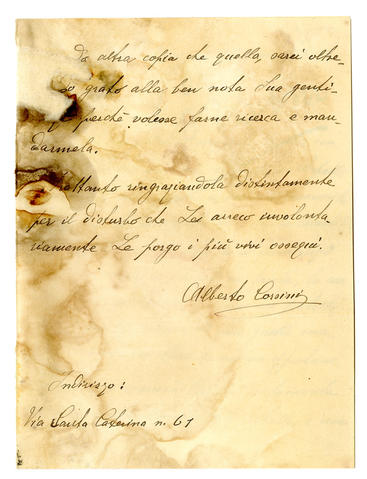 da altra copia che quella, sarei oltre-
o grato alla ben nota Sua genti-
perchè volesse farne ricerca e man-
darmela.
attanto ringraziandola distintamente
per il disturbo che Le arreco involonta-
riamente Le porgo i più vivi ossequi.
Alberto Corsini
Indirizzo:
Via Santa Caterina n. 61